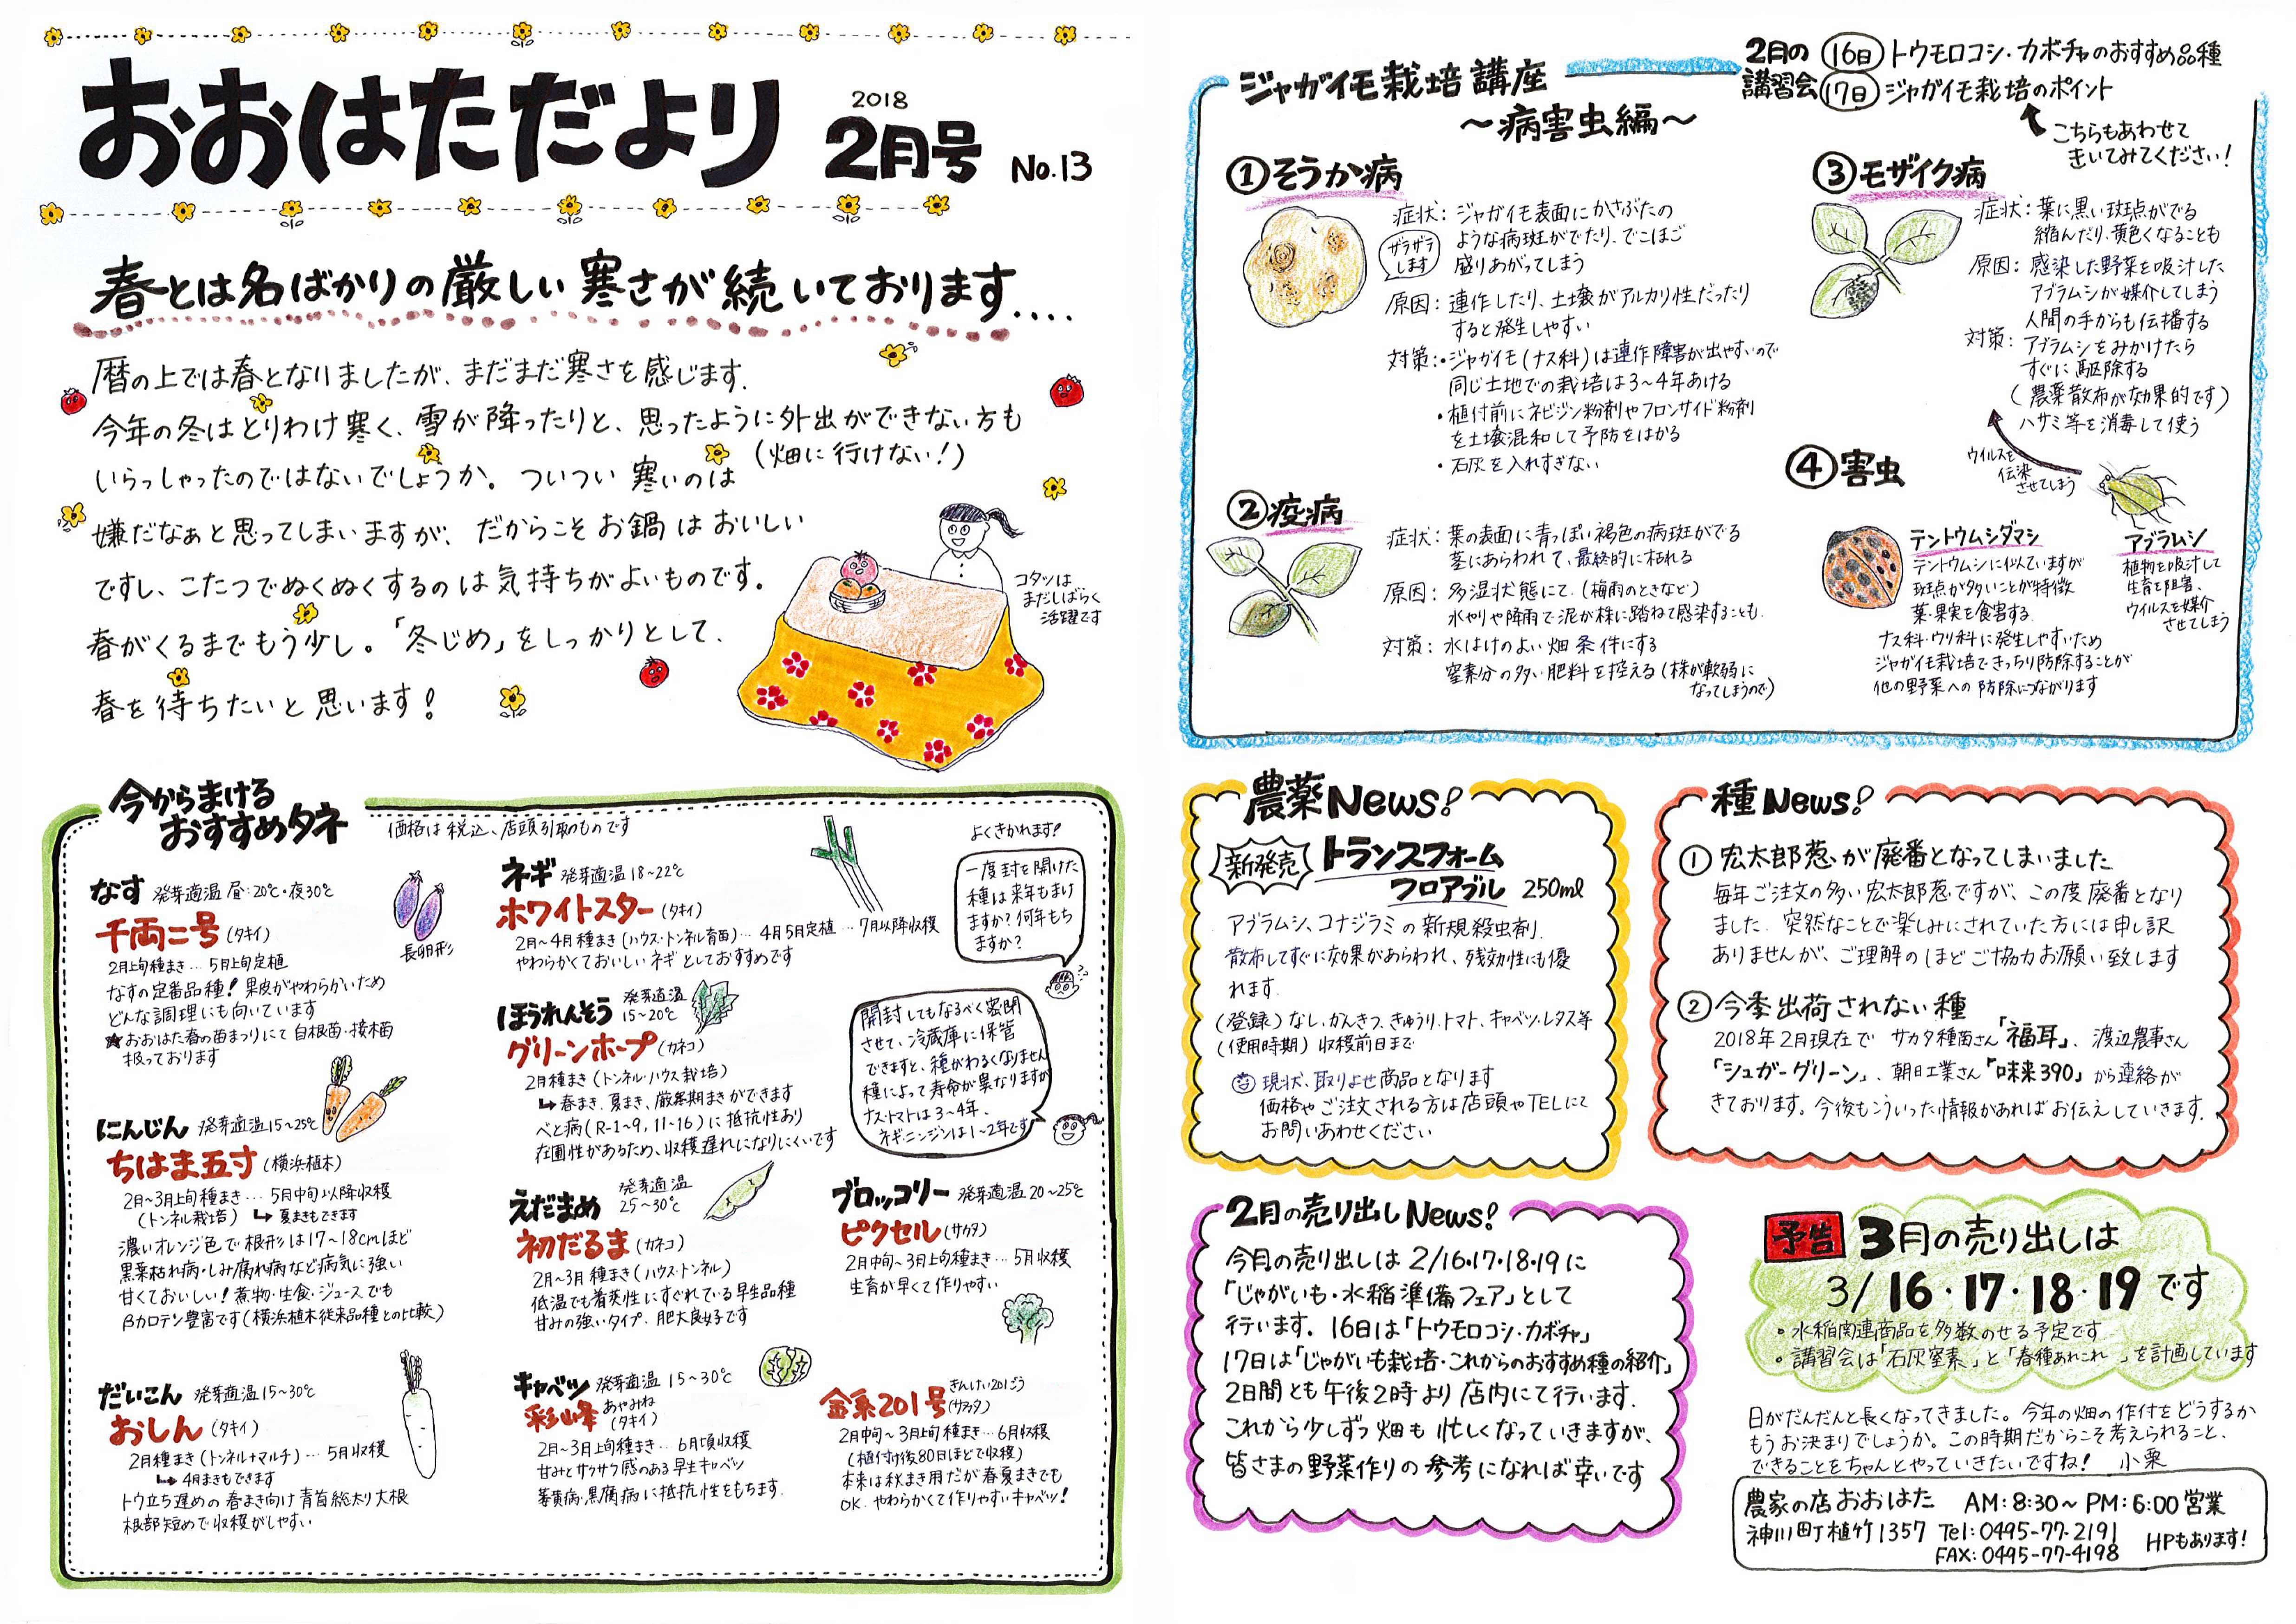 おおはただより
2018
2月号 No.13
春とは名ばかりの厳しい寒さが続いております....
暦の上では春となりましたが、まだまだ寒さを感じます。
今年の冬はとりわけ寒く、雪が降ったりと、思ったように外出ができない方も
(畑に行けない!)
いらっしゃったのではないでしょうか。ついつい寒いのは
嫌だなぁと思ってしまいますが、だからこそお鍋はおいしい
ですし、こたつでぬくぬくするのは気持ちがよいものです。
春がくるまでもう少し。「冬じめ」をしっかりとして、
春を待ちたいと思います!
コタツは
まだしばらく
活躍です
今からまける
おすすめタネ
価格は税込、店頭引取のものです
なす 発芽適温 昼:20℃・夜30℃
千両二号(タキイ)
長卵形
2月上旬種まき… 5月上旬定植
なすの定番品種! 果皮がやわらかいため
どんな調理にも向いています
★おおはた春の苗まつりにて 自根苗・接木苗
扱っております
にんじん 発芽適温15~25℃
ちはま五寸(横浜植木)
2月~3月上旬種まき… 5月中旬以降収穫
(トンネル栽培) ↳ 夏まきもできます
濃いオレンジ色で根形は17~18cmほど
黒葉枯れ病・しみ腐れ病など病気に強い
甘くておいしい! 煮物・生食・ジュースでも
βカロテン豊富です(横浜植木従来品種との比較)
だいこん 発芽適温15~30℃
おしん(タキイ)
2月種まき(トンネル+マルチ)… 5月収穫
↳ 4月まきもできます
トウ立ち遅めの春まき向け青首総太り大根
根部短めで収穫がしやすい
ネギ 発芽適温18~22℃
ホワイトスター(タキイ)
2月~4月種まき(ハウス・トンネル育苗)… 4月5月定植… 7月以降収穫
やわらかくておいしいネギとしておすすめです
ほうれんそう 発芽適温
15~20℃
グリーンホープ(カネコ)
2月種まき(トンネル・ハウス栽培)
↳ 春まき、夏まき、厳寒期まきができます
べと病(R-1~9, 11~16)に抵抗性あり
在圃性があるため、収穫遅れになりにくいです
えだまめ 発芽適温
25~30℃
初だるま(カネコ)
2月~3月種まき(ハウス・トンネル)
低温でも着莢性にすぐれている早生品種
甘みの強いタイプ、肥大良好です
キャベツ 発芽適温 15~30℃
彩峰 あやみね
(タキイ)
2月~3月上旬種まき… 6月頃収穫
甘みとサクサク感のある早生キャベツ
萎黄病・黒腐病に抵抗性をもちます
よくきかれます!
一度封を開けた
種は来年もまけ
ますか? 何年もち
ますか?
開封してもなるべく密閉
させて、冷蔵庫に保管
できますと、種がわるくなりません
種によって寿命が異なりますが
ナス・トマトは3~4年、
ネギ・ニンジンは1~2年です
ブロッコリー 発芽適温20~25℃
ピクセル(サカタ)
2月中旬~3月上旬種まき… 5月収穫
生育が早くて作りやすい
金系201号 きんけい201ごう
(サカタ)
2月中旬~3月上旬種まき… 6月収穫
(植付け後80日ほどで収穫)
本来は秋まき用だが春夏まきでも
OK. やわらかくて作りやすいキャベツ!
ジャガイモ栽培講座
~病害虫編~
2月の講習会
16日 トウモロコシ・カボチャのおすすめ品種
17日 ジャガイモ栽培のポイント
こちらもあわせて
きいてみてください!
①そうか病
症状: ジャガイモ表面にかさぶたの
ような病斑がでたり、でこぼこ
盛りあがってしまう
ザラザラ
します
原因: 連作したり、土壌がアルカリ性だったり
すると発生しやすい
対策:・ジャガイモ(ナス科)は連作障害が出やすいので
同じ土地での栽培は3~4年あける
・植付前にネビジン粉剤やフロンサイド粉剤
を土壌混和して予防をはかる
・石灰を入れすぎない
②疫病
症状: 葉の表面に青っぽい褐色の病斑がでる
茎にあらわれて、最終的に枯れる
原因: 多湿状態にて(梅雨のときなど)
水やりや降雨で泥が株に跳ねて感染することも
対策: 水はけのよい畑条件にする
窒素分の多い肥料を控える(株が軟弱に
なってしまうので)
③モザイク病
症状: 葉に黒い斑点がでる
縮んだり、黄色くなることも
原因: 感染した野菜を吸汁した
アブラムシが媒介してしまう
人間の手からも伝播する
対策: アブラムシをみかけたら
すぐに駆除する
(農薬散布が効果的です)
ハサミ等を消毒して使う
ウイルスを
伝染
させてしまう
④害虫
テントウムシダマシ
テントウムシに似ていますが
斑点が多いことが特徴
葉・果実を食害する
ナス科・ウリ科に発生しやすいため
ジャガイモ栽培できっちり防除することが
他の野菜への防除につながります
アブラムシ
植物を吸汁して
生育を阻害、
ウイルスを媒介
させてしまう
農薬News!
新発売 トランスフォーム
フロアブル 250ml
アブラムシ、コナジラミの新規殺虫剤
散布してすぐに効果があらわれ、残効性にも優
れます
(登録)なし、かんきつ、きゅうり、トマト、キャベツ、レタス等
(使用時期)収穫前日まで
現状、取りよせ商品となります
価格やご注文される方は店頭やTELにて
お問いあわせください
種News!
① 宏太郎葱が廃番となってしまいました
毎年ご注文の多い宏太郎葱ですが、この度廃番となり
ました。突然なことで楽しみにされていた方には申し訳
ありませんが、ご理解のほどご協力お願い致します
② 今季出荷されない種
2018年2月現在で サカタ種苗さん「福耳」、渡辺農事さん
「シュガーグリーン」、朝日工業さん「味来390」から連絡が
きております。今後もこういった情報があればお伝えしていきます.
2月の売り出しNews!
今月の売り出しは 2/16・17・18・19に
「じゃがいも・水稲準備フェア」として
行います. 16日は「トウモロコシ・カボチャ」
17日は「じゃがいも栽培・これからのおすすめ種の紹介」
2日間とも午後2時より店内にて行います.
これから少しずつ畑も忙しくなっていきますが、
皆さまの野菜作りの参考になれば幸いです
予告 3月の売り出しは
3/16・17・18・19です
・水稲関連商品を多数のせる予定です
・講習会は「石灰窒素」と「春種あれこれ」を計画しています
日がだんだんと長くなってきました。今年の畑の作付をどうするか
もうお決まりでしょうか。この時期だからこそ考えられること、
できることをちゃんとやっていきたいですね! 小栗
農家の店おおはた AM:8:30~PM:6:00営業
神川町植竹1357 Tel:0495-77-2191
FAX:0495-77-4198 HPもあります!